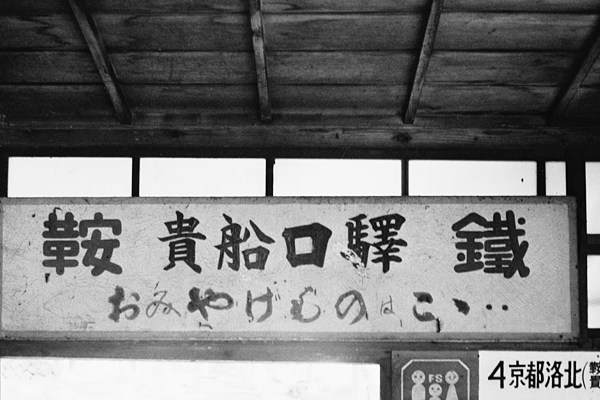 鞍 貴船口驛 鐵
おみやげものはこゝ‥
FS
4京都洛北(鞍
貴